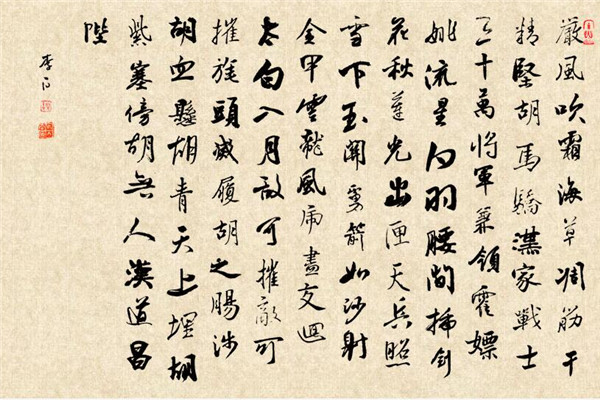 嚴風吹霜海草凋筋干
精堅胡馬驕漢家戰士
三十萬將軍兼領霍嫖
姚流星白羽腰間插劍
花秋蓮光出匣天兵照
雪下玉關虜箭如沙射
金甲雲龍風虎盡交迴
太白入月敌可摧敵可
摧旄頭滅履胡之腸涉
胡血懸胡青天上埋胡
紫塞傍胡無人漢道昌
陛
李白